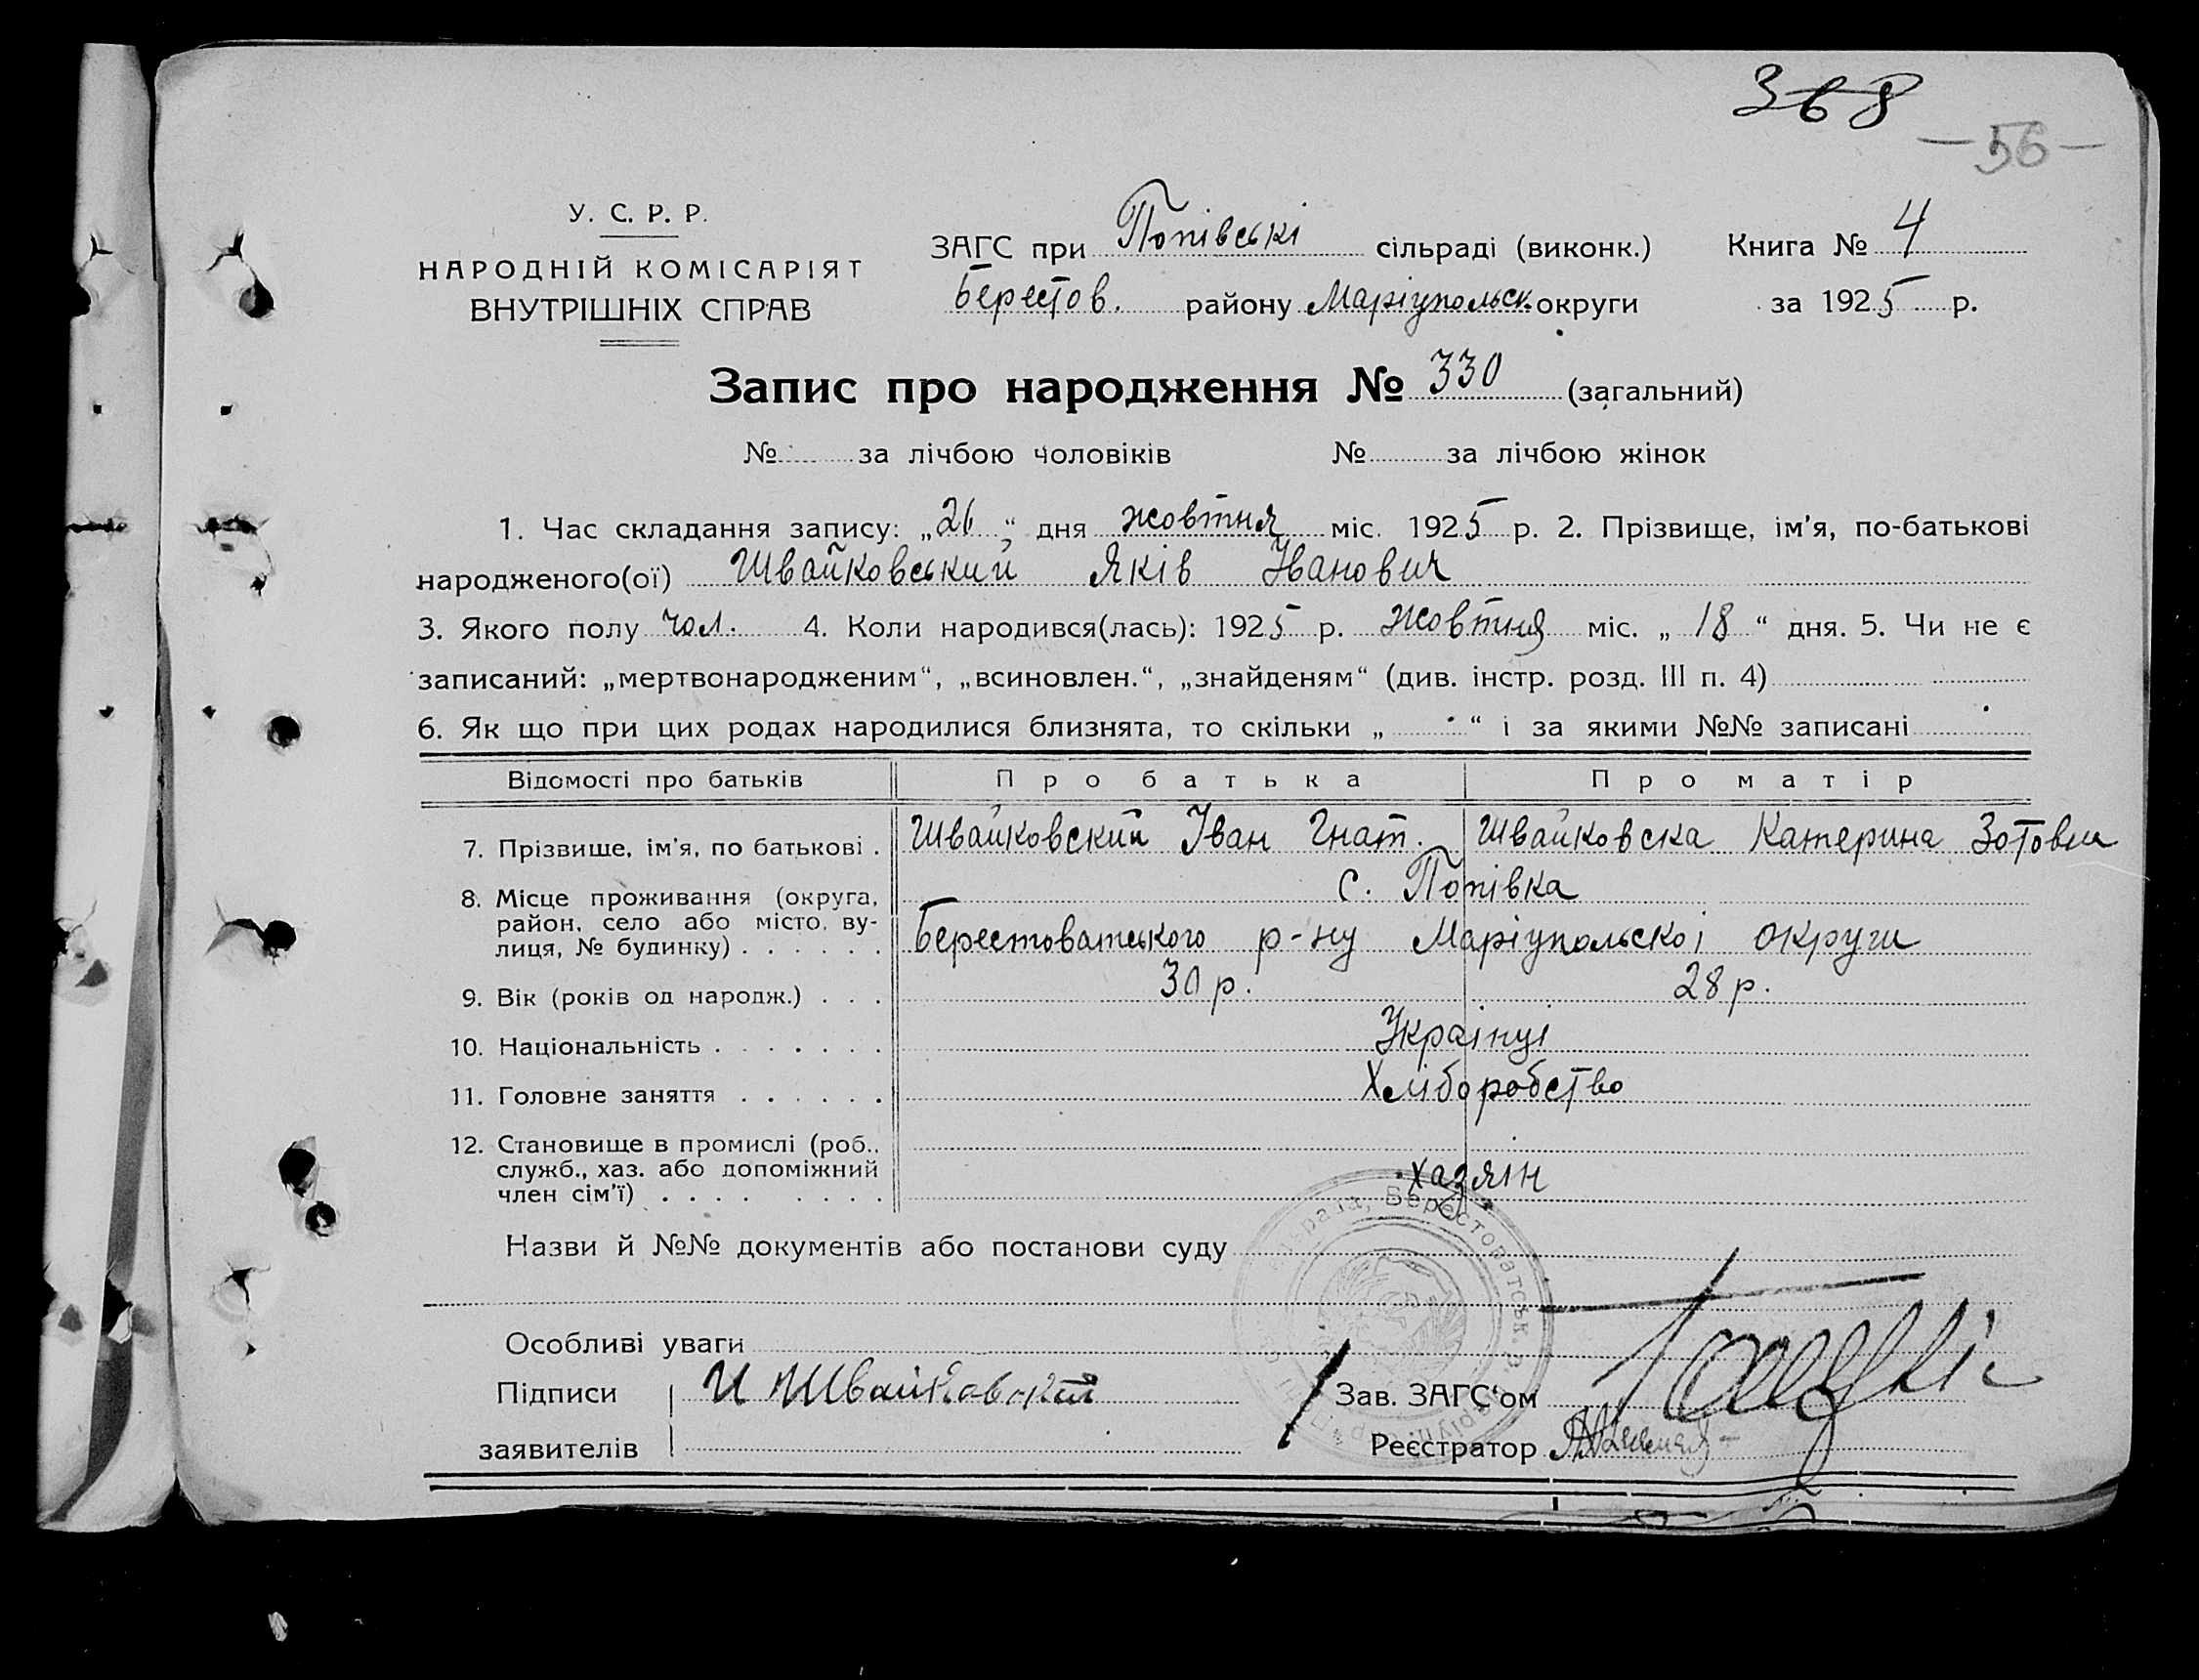 368
— 56 —
У. С. Р. Р.
НАРОДНІЙ КОМІСАРІЯТ
ВНУТРІШНІХ СПРАВ
ЗАГС при Попівські сільраді (виконк.) Книга № 4
Берестов. району Маріупольск. округи за 1925 р.
Запис про народження № 330 (загальний)
№ за лічбою чоловіків № за лічбою жінок
1. Час складання запису: „26“ дня жовтня міс. 1925 р. 2. Прізвище, ім'я, по-батькові
народженого(ої) Швайковський Яків Іванович
3. Якого полу чол. 4. Коли народився(лась): 1925 р. жовтня міс. „18“ дня. 5. Чи не є
записаний: „мертвонародженим“, „всиновлен.“, „знайденям“ (див. інстр. розд. III п. 4)
6. Як що при цих родах народилися близнята, то скільки „ “ і за якими №№ записані
Відомості про батьків Про батька Про матір
7. Прізвище, ім'я, по батькові . Швайковский Іван Гнат. Швайковска Катерина Зотовна
8. Місце проживання (округа, с. Попівка
район, село або місто, ву-
лиця, № будинку) . . . . . . Берестоватського р-ну Маріупольскоі округи
9. Вік (років од народж.) . . . 30 р. 28 р.
10. Національність . . . . . . . Украінці
11. Головне заняття . . . . . . Хліборобство
12. Становище в промислі (роб.,
служб., хаз. або допоміжний
член сім'ї) . . . . . . . . . хазяін
Назви й №№ документів або постанови суду
Особливі уваги
Підписи И Швайковский Зав. ЗАГС'ом
заявителів Реєстратор